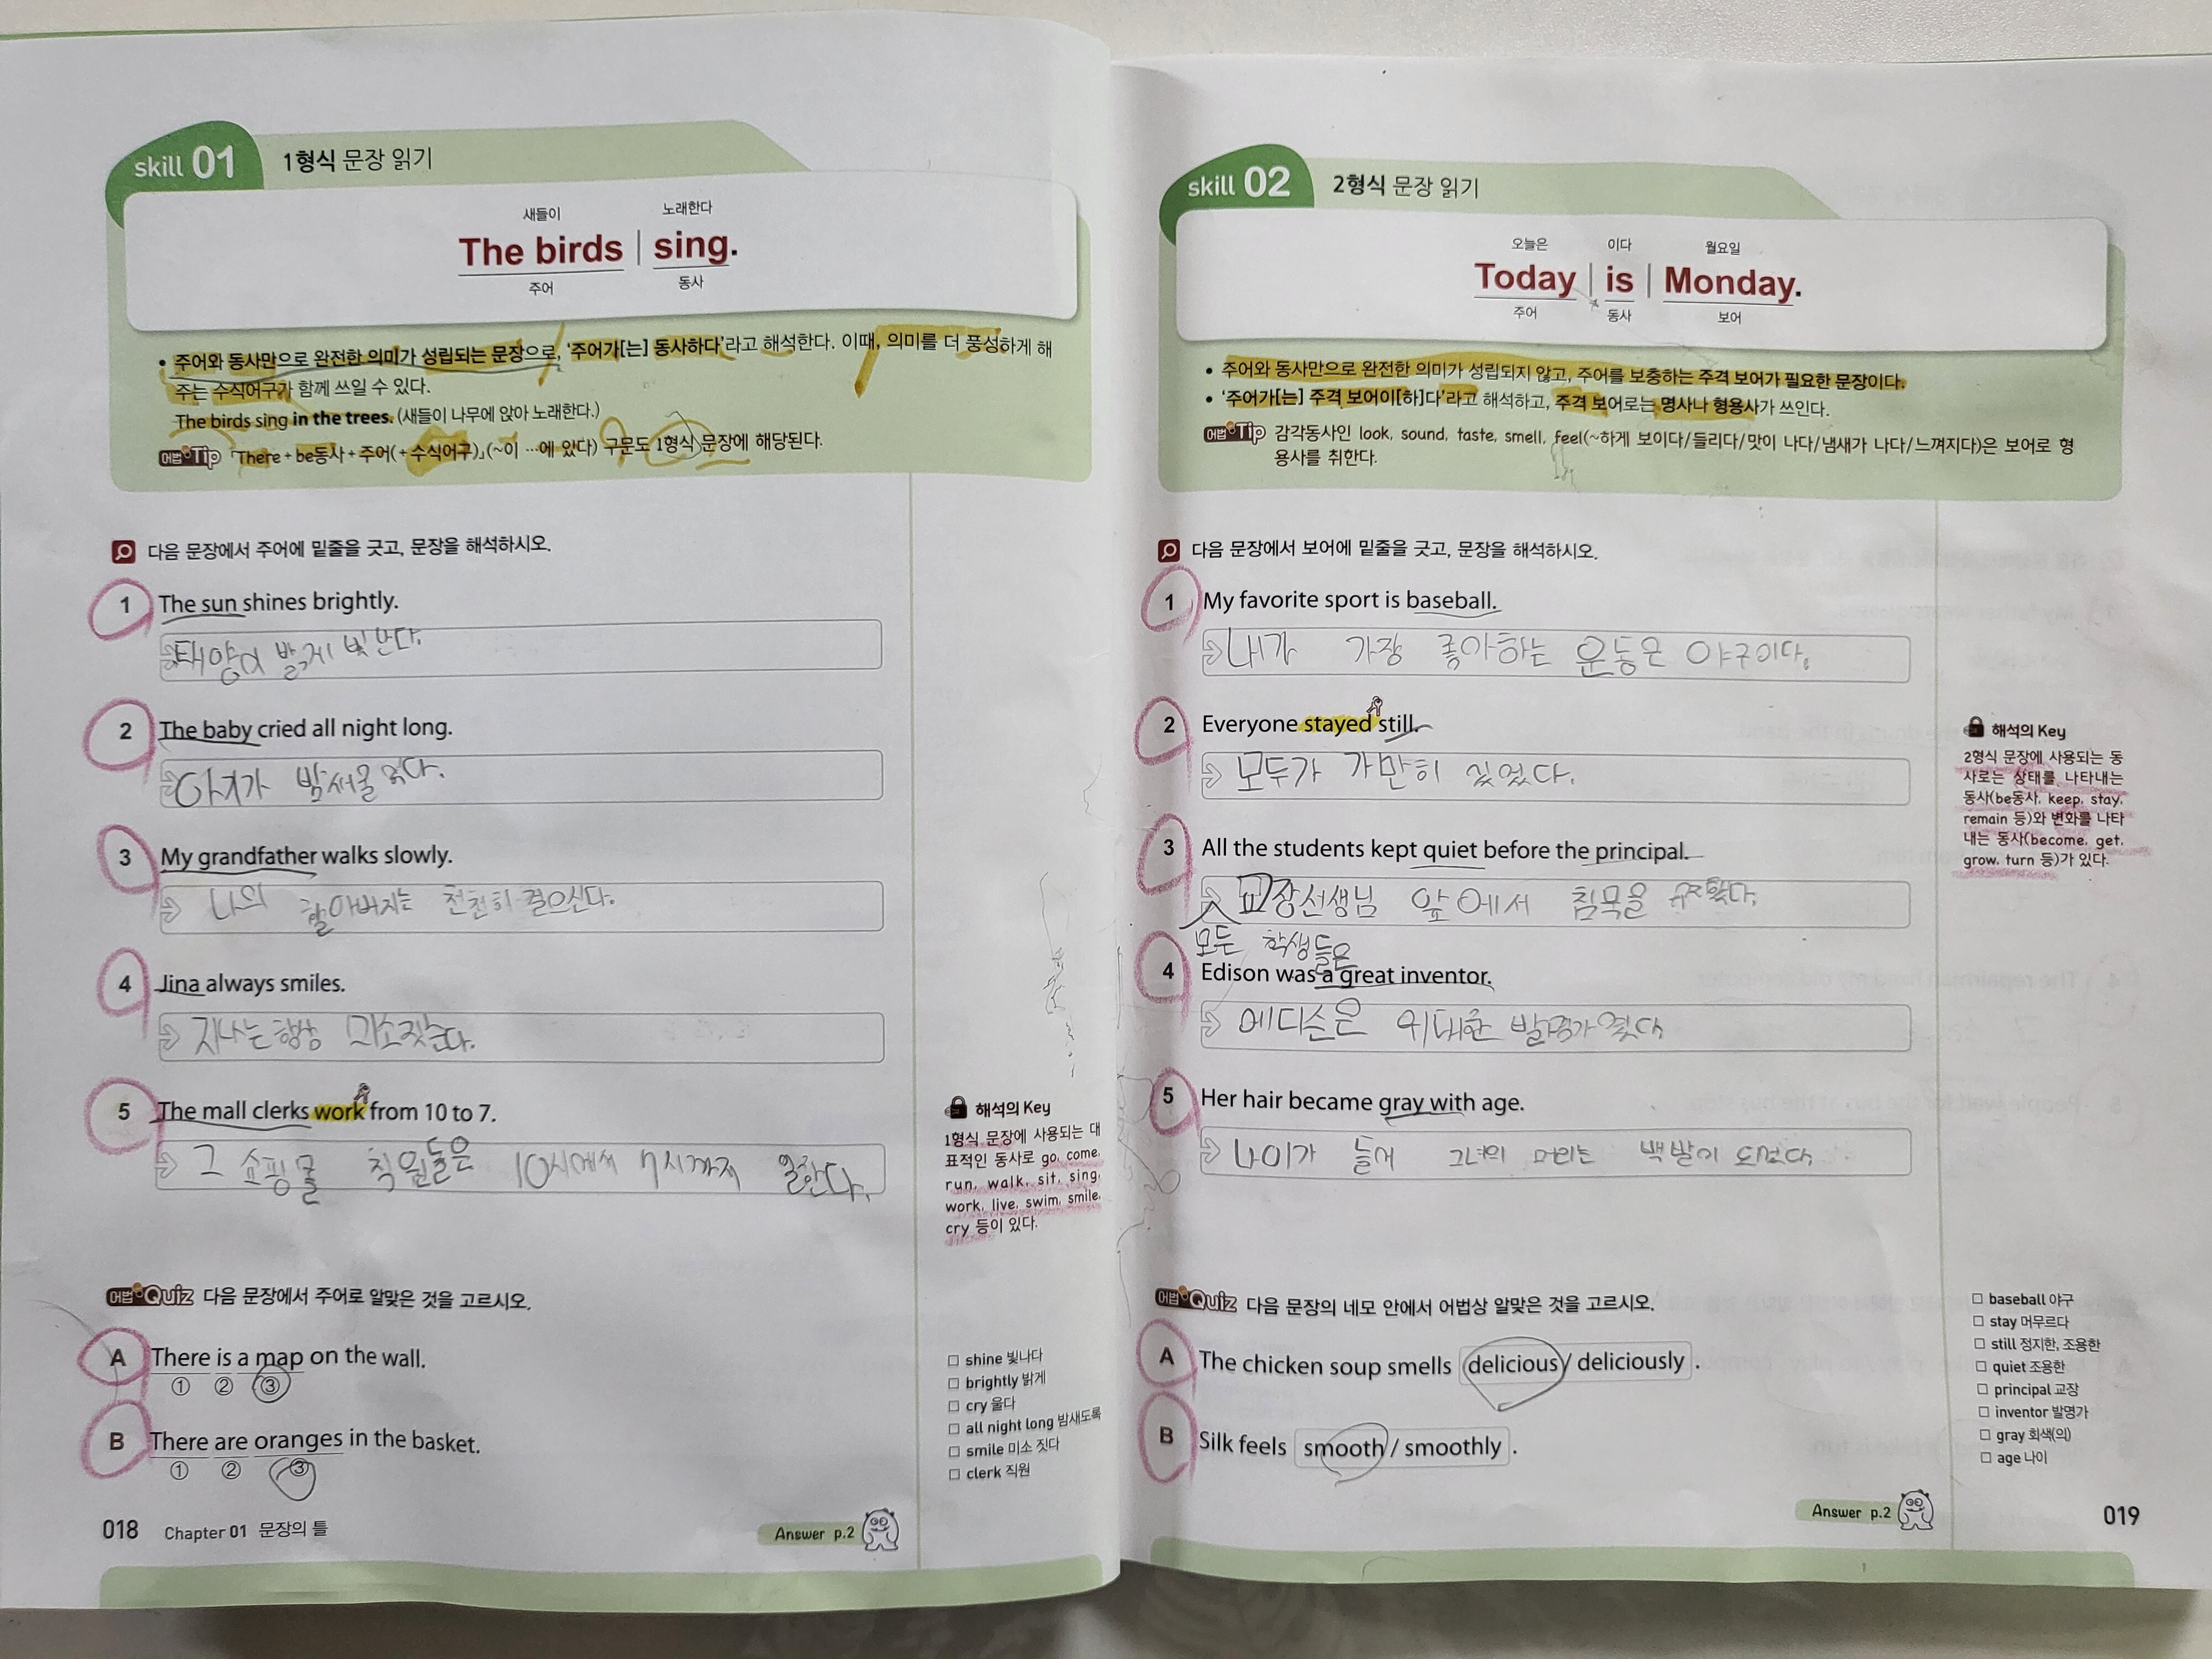 skill 01 1형식 문장 읽기
새들이 노래한다
The birds | sing.
주어 동사
• 주어와 동사만으로 완전한 의미가 성립되는 문장으로, '주어가[는] 동사하다'라고 해석한다. 이때, 의미를 더 풍성하게 해
주는 수식어구가 함께 쓰일 수 있다.
The birds sing in the trees. (새들이 나무에 앉아 노래한다.)
어법 Tip 「There + be동사 + 주어(+ 수식어구)」(~이 …에 있다) 구문도 1형식 문장에 해당된다.
다음 문장에서 주어에 밑줄을 긋고, 문장을 해석하시오.
1 The sun shines brightly.
태양이 밝게 빛난다.
2 The baby cried all night long.
아기가 밤새 울었다.
3 My grandfather walks slowly.
나의 할아버지는 천천히 걸으신다.
4 Jina always smiles.
지나는 항상 미소짓는다.
5 The mall clerks work from 10 to 7.
그 쇼핑몰 직원들은 10시에서 7시까지 일한다.
해석의 Key
1형식 문장에 사용되는 대
표적인 동사로 go, come,
run, walk, sit, sing,
work, live, swim, smile,
cry 등이 있다.
어법 Quiz 다음 문장에서 주어로 알맞은 것을 고르시오.
A There is a map on the wall.
① ② ③
B There are oranges in the basket.
① ② ③
□ shine 빛나다
□ brightly 밝게
□ cry 울다
□ all night long 밤새도록
□ smile 미소 짓다
□ clerk 직원
018 Chapter 01 문장의 틀
Answer p.2
skill 02 2형식 문장 읽기
오늘은 이다 월요일
Today | is | Monday.
주어 동사 보어
• 주어와 동사만으로 완전한 의미가 성립되지 않고, 주어를 보충하는 주격 보어가 필요한 문장이다.
• '주어가[는] 주격 보어이[하]다'라고 해석하고, 주격 보어로는 명사나 형용사가 쓰인다.
어법 Tip 감각동사인 look, sound, taste, smell, feel(~하게 보이다/들리다/맛이 나다/냄새가 나다/느껴지다)은 보어로 형
용사를 취한다.
다음 문장에서 보어에 밑줄을 긋고, 문장을 해석하시오.
1 My favorite sport is baseball.
내가 가장 좋아하는 운동은 야구이다.
2 Everyone stayed still.
모두가 가만히 있었다.
3 All the students kept quiet before the principal.
교장선생님 앞에서 침묵을 유지했다.
모든 학생들은
4 Edison was a great inventor.
에디슨은 위대한 발명가였다
5 Her hair became gray with age.
나이가 들어 그녀의 머리는 백발이 되었다
해석의 Key
2형식 문장에 사용되는 동
사로는 상태를 나타내는
동사(be동사, keep, stay,
remain 등)와 변화를 나타
내는 동사(become, get,
grow, turn 등)가 있다.
어법 Quiz 다음 문장의 네모 안에서 어법상 알맞은 것을 고르시오.
A The chicken soup smells delicious / deliciously .
B Silk feels smooth / smoothly .
□ baseball 야구
□ stay 머무르다
□ still 정지한, 조용한
□ quiet 조용한
□ principal 교장
□ inventor 발명가
□ gray 회색(의)
□ age 나이
Answer p.2
019